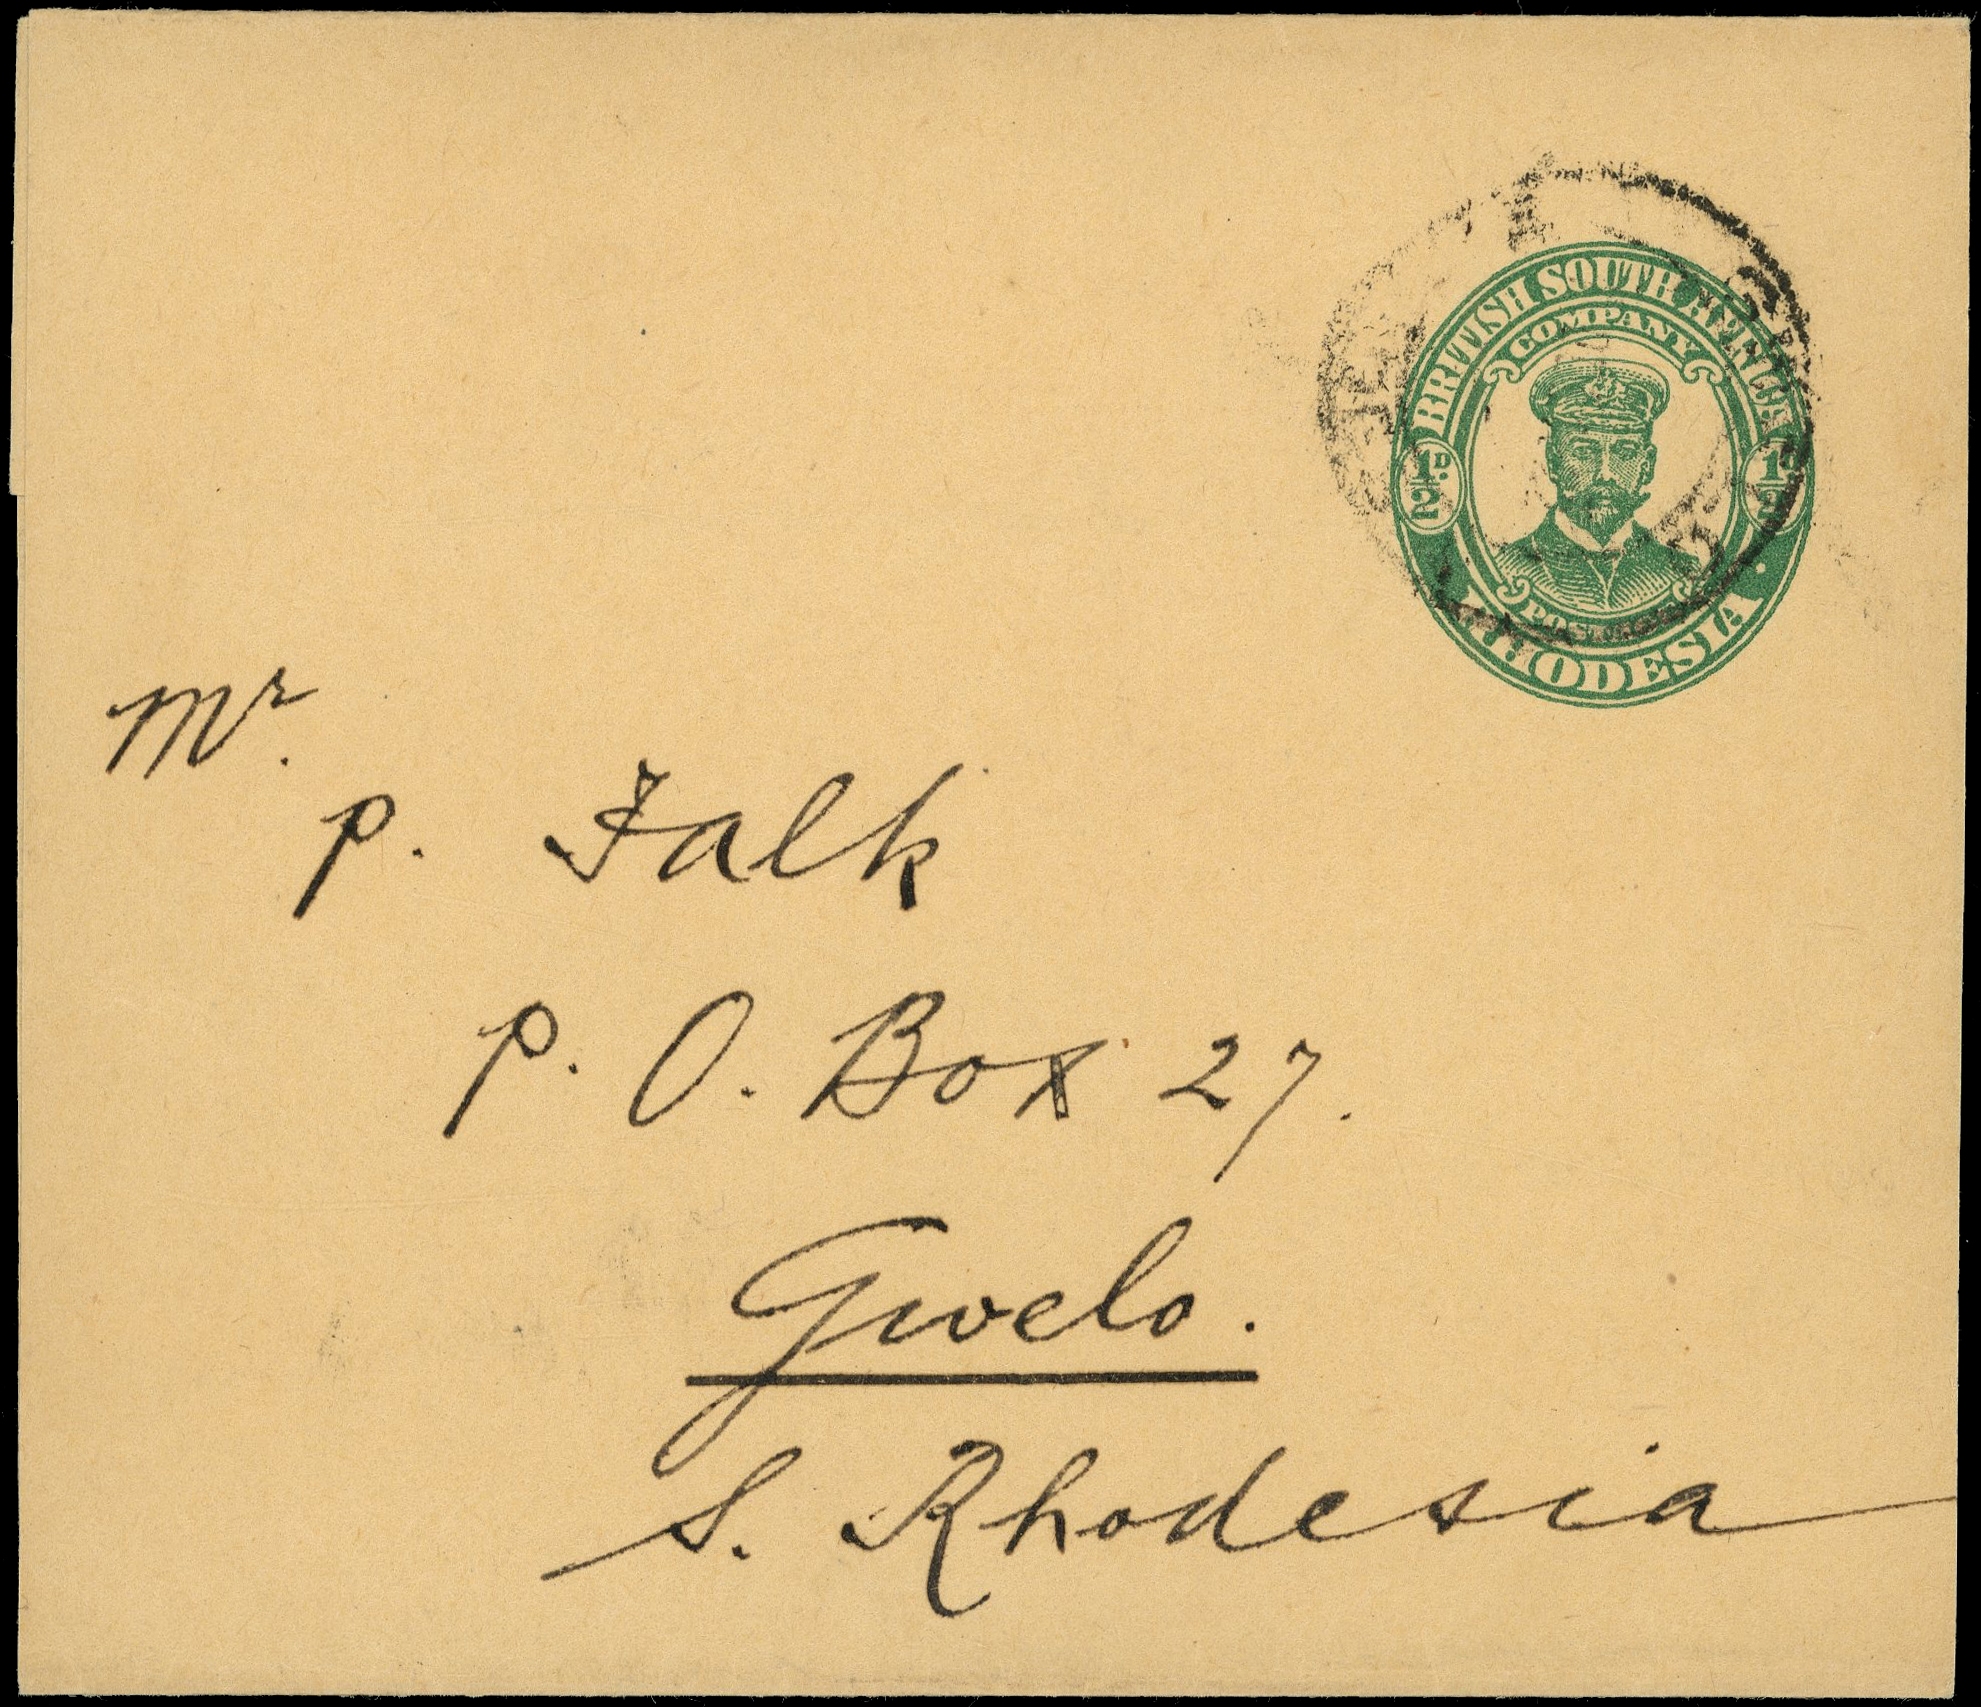 BRITISH SOUTH AFRICA
COMPANY
½D.
½D.
POSTAGE
RHODESIA
Mr.
P. Falk
P. O. Box 27.
Gwelo.
S. Rhodesia